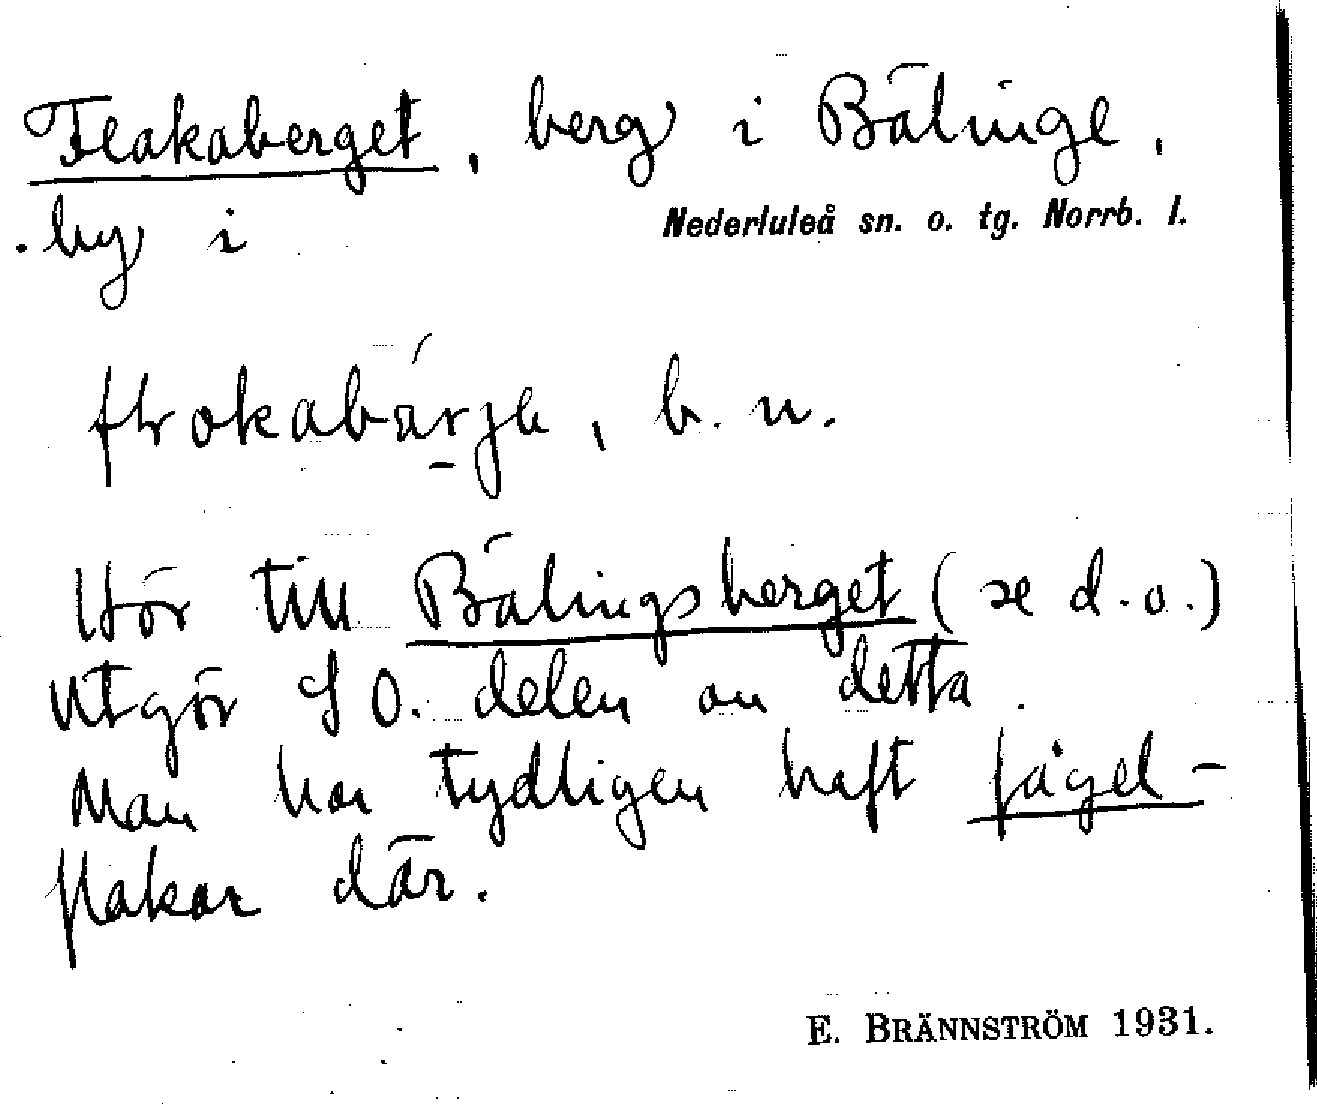 Flakaberget, berg i Bälinge,
by i Nederluleå sn. o. tg. Norrb. l.
b. n.
Hör till Bälingsberget (se d.o.)
utgör SO. delen av detta.
Man har tydligen haft fågel-
flakar där.
E. BRÄNNSTRÖM 1931.